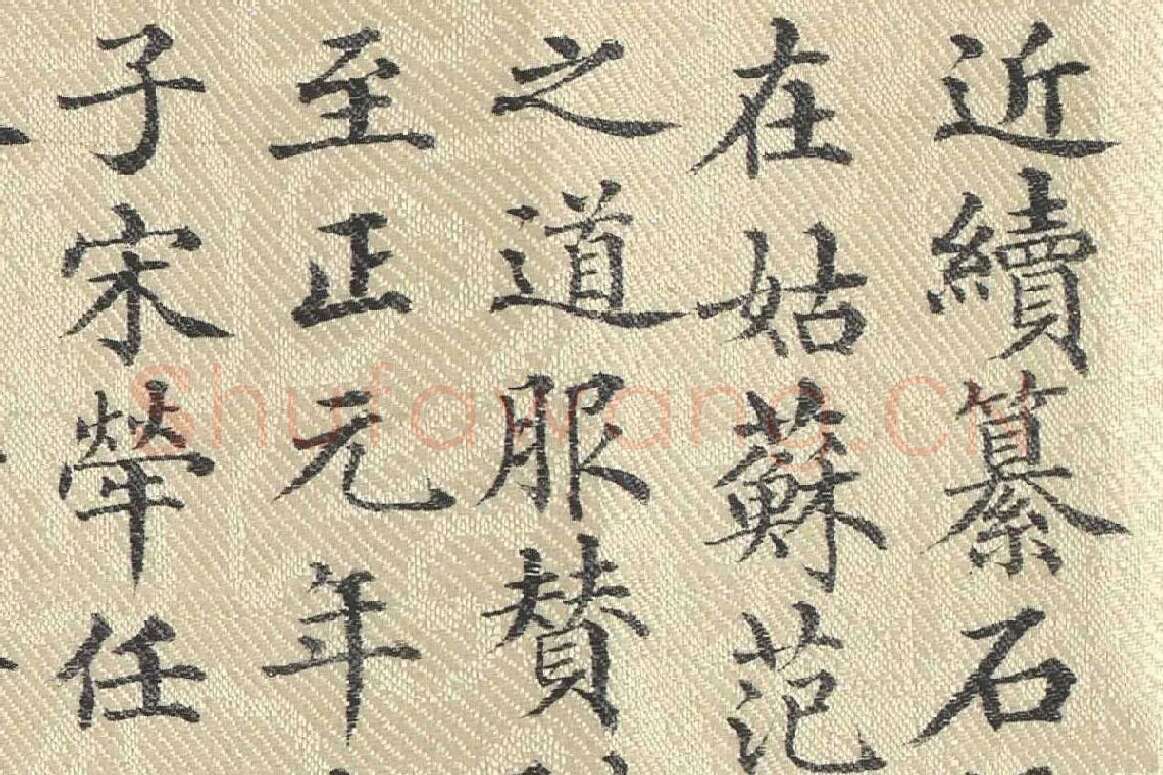 近續纂石
在姑蘇范
之道服贊
至正元年
子宋犖任
Shufawang.cn